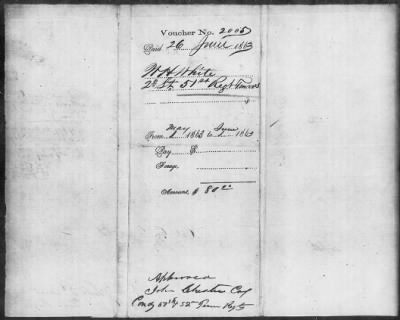 Voucher No. 2005
Paid 26 June 1863
W H White
2d Lt. 51st Regt Tenn Vols
$
From 1 May 1863 to June 1863
Pay $
Forage
Amount $ 80.00
Approved
John Chester Col
Comdg 51st & 52d Tenn Regts